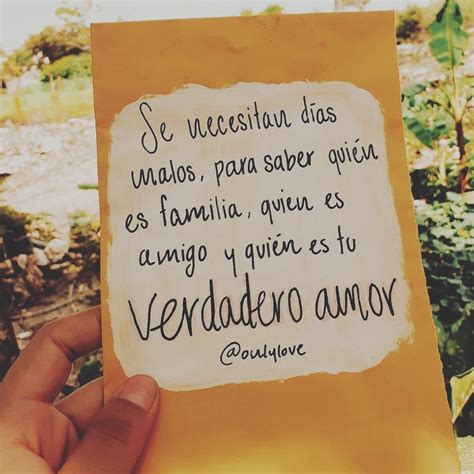 Se necesitan días
malos, para saber quién
es familia, quien es
amigo y quién es tu
verdadero amor
@oulylove